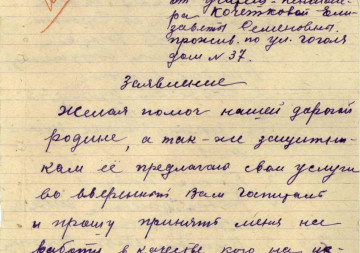 от учениц-пенсионе-
ра Кочетковой Ели-
заветы Семеновны
прожив. по ул. Гоголя
дом N 37.
Заявление
Желая помоч нашей дорогой
родине, а так-же защитни-
кам её предлагаю свои услуги
во вверенный Вам госпиталь
и прошу принять меня на
работу в качестве кого на